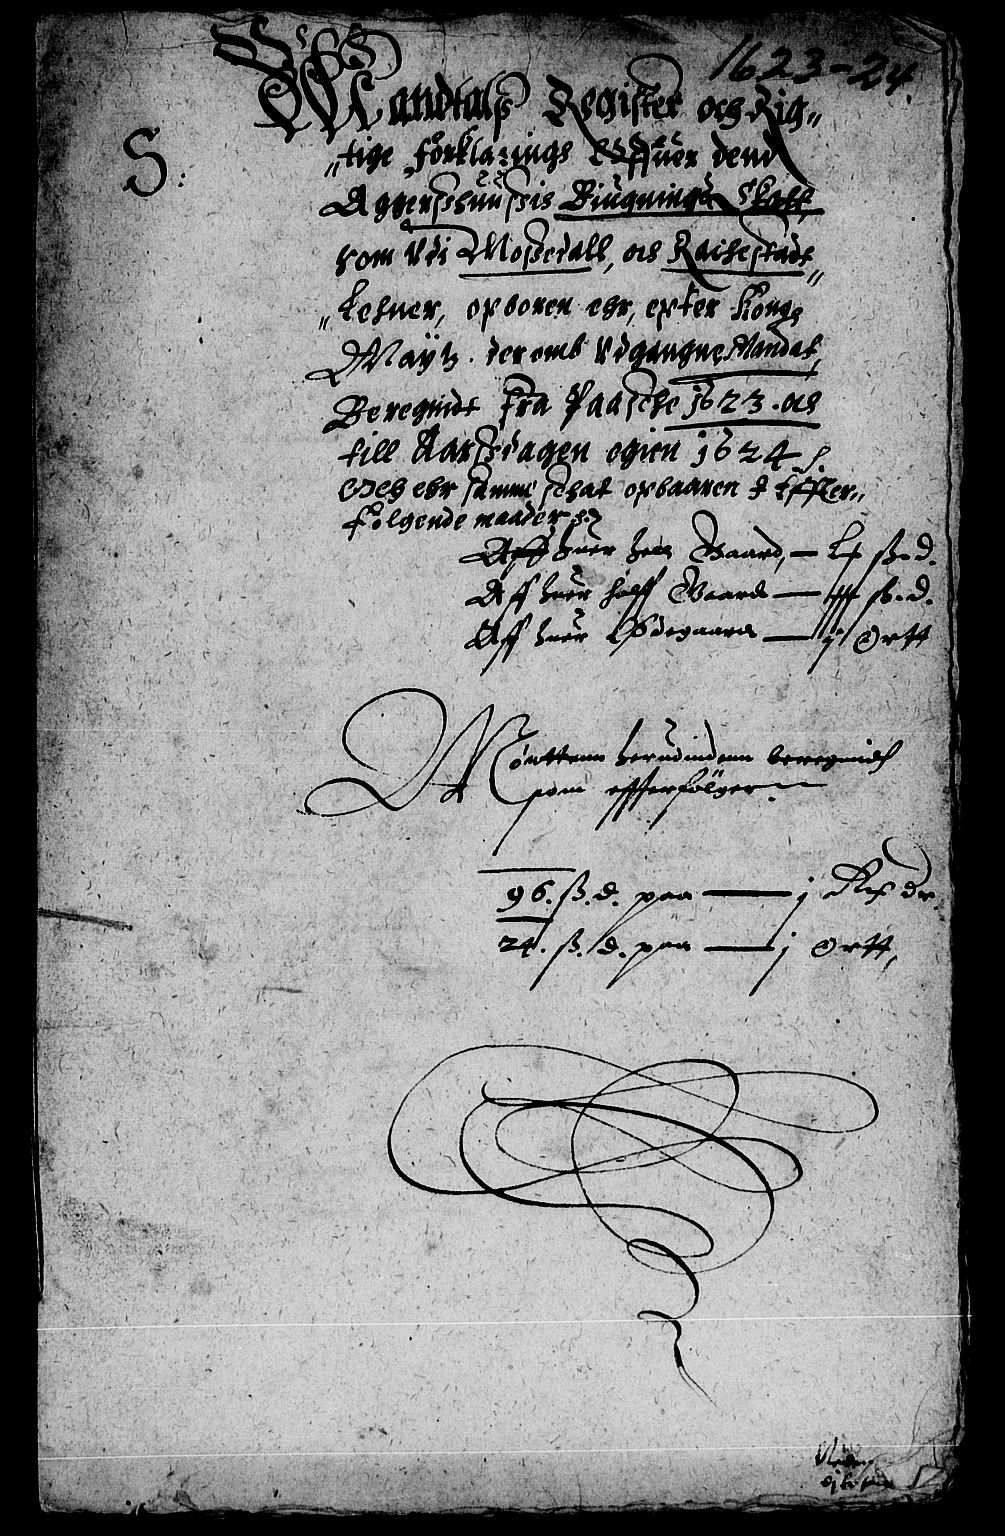 1623-24.
S:
Mandtals Register och Rig„
„tige forklarings Offuer denn
Aggersshuussis Biugnings Skatt,
som Vdi Mossedall, och Rachestads
„Lehner, opboren ehr, epter Kong:
Maytz. der omb Vdgangne Mandat,
Beregnidt fra Paasche 1623. och
till Aarssdagen egien 1624
Och ehr samme schat opbaaren Effter„
følgende maader
Aff huer heel Gaard, — ß. d.
Aff huer halff Gaard — ß. d.
Aff huer Ødegaard — j Ortt
Mønttenn herudindenn beregnidt
som effterfølger.
96. ß. d. paa — j Rix dr.
24. ß. d. paa — j ortt,